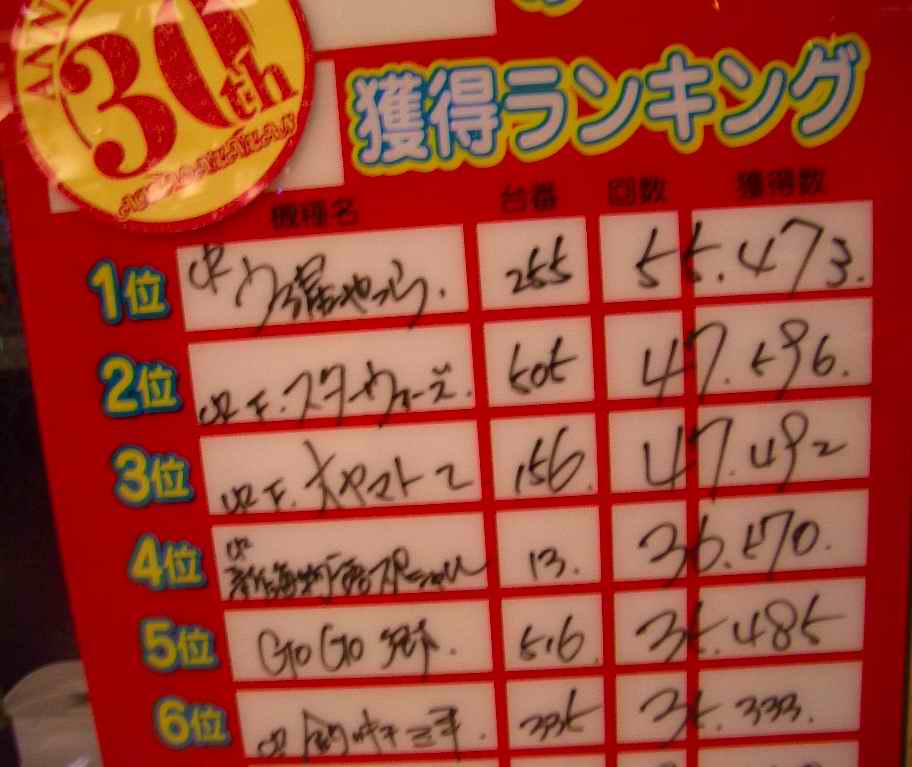 30th
獲得ランキング
機種名 台番 回数 獲得数
1位 255 55.473.
2位 CRF.スターウォーズ. 505 47.596.
3位 CRF.大ヤマト2 156. 47.492
4位 CR 13. 36.570.
5位 GoGo郷. 516. 35.485
6位 335 35.333.